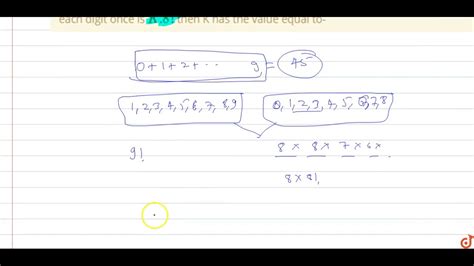 each digit once is K. 8! then K has the value equal to-
0+1+2+ ... 9 = 45
1,2,3,4,5,6,7,8,9 0,1,2,3,4,5,6,7,8
9! 8 × 8 × 7 × 6 ×
8 × 8!